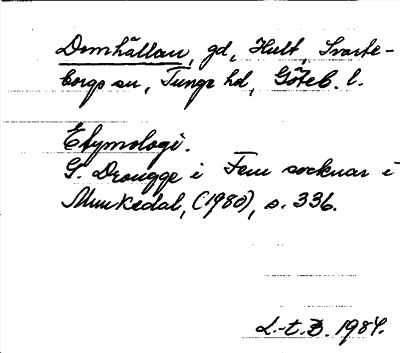 Domhällan, gd, Hult, Svarte-
borgs sn, Tunge hd, Göteb. l.
Etymologi.
G. Drougge i Fem socknar i
Munkedal, (1980), s. 336.
L.-t. B. 1984.